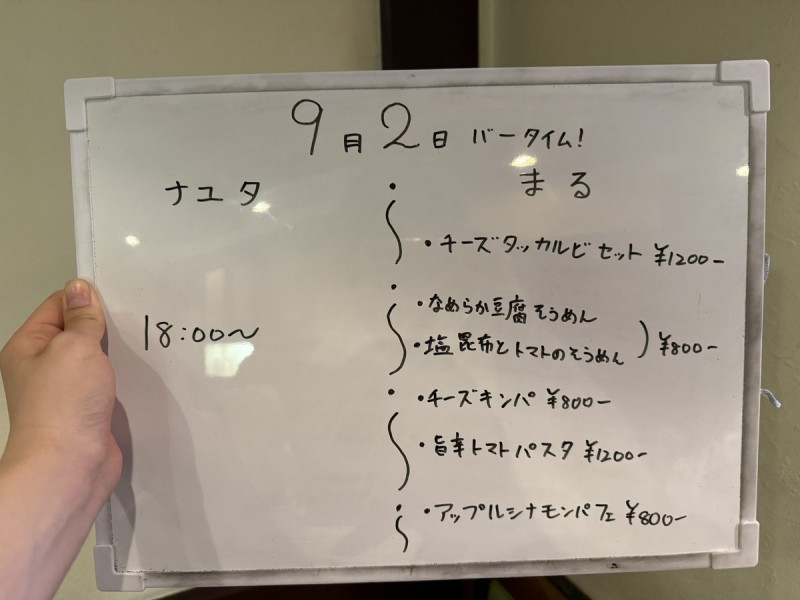 9月2日 バータイム!
ナユタ
まる
・チーズダッカルビセット ¥1200-
・なめらか豆腐そうめん
・塩昆布とトマトのそうめん ¥800-
18:00〜
・チーズキンパ ¥800-
・旨辛トマトパスタ ¥1200-
・アップルシナモンパフェ ¥800-